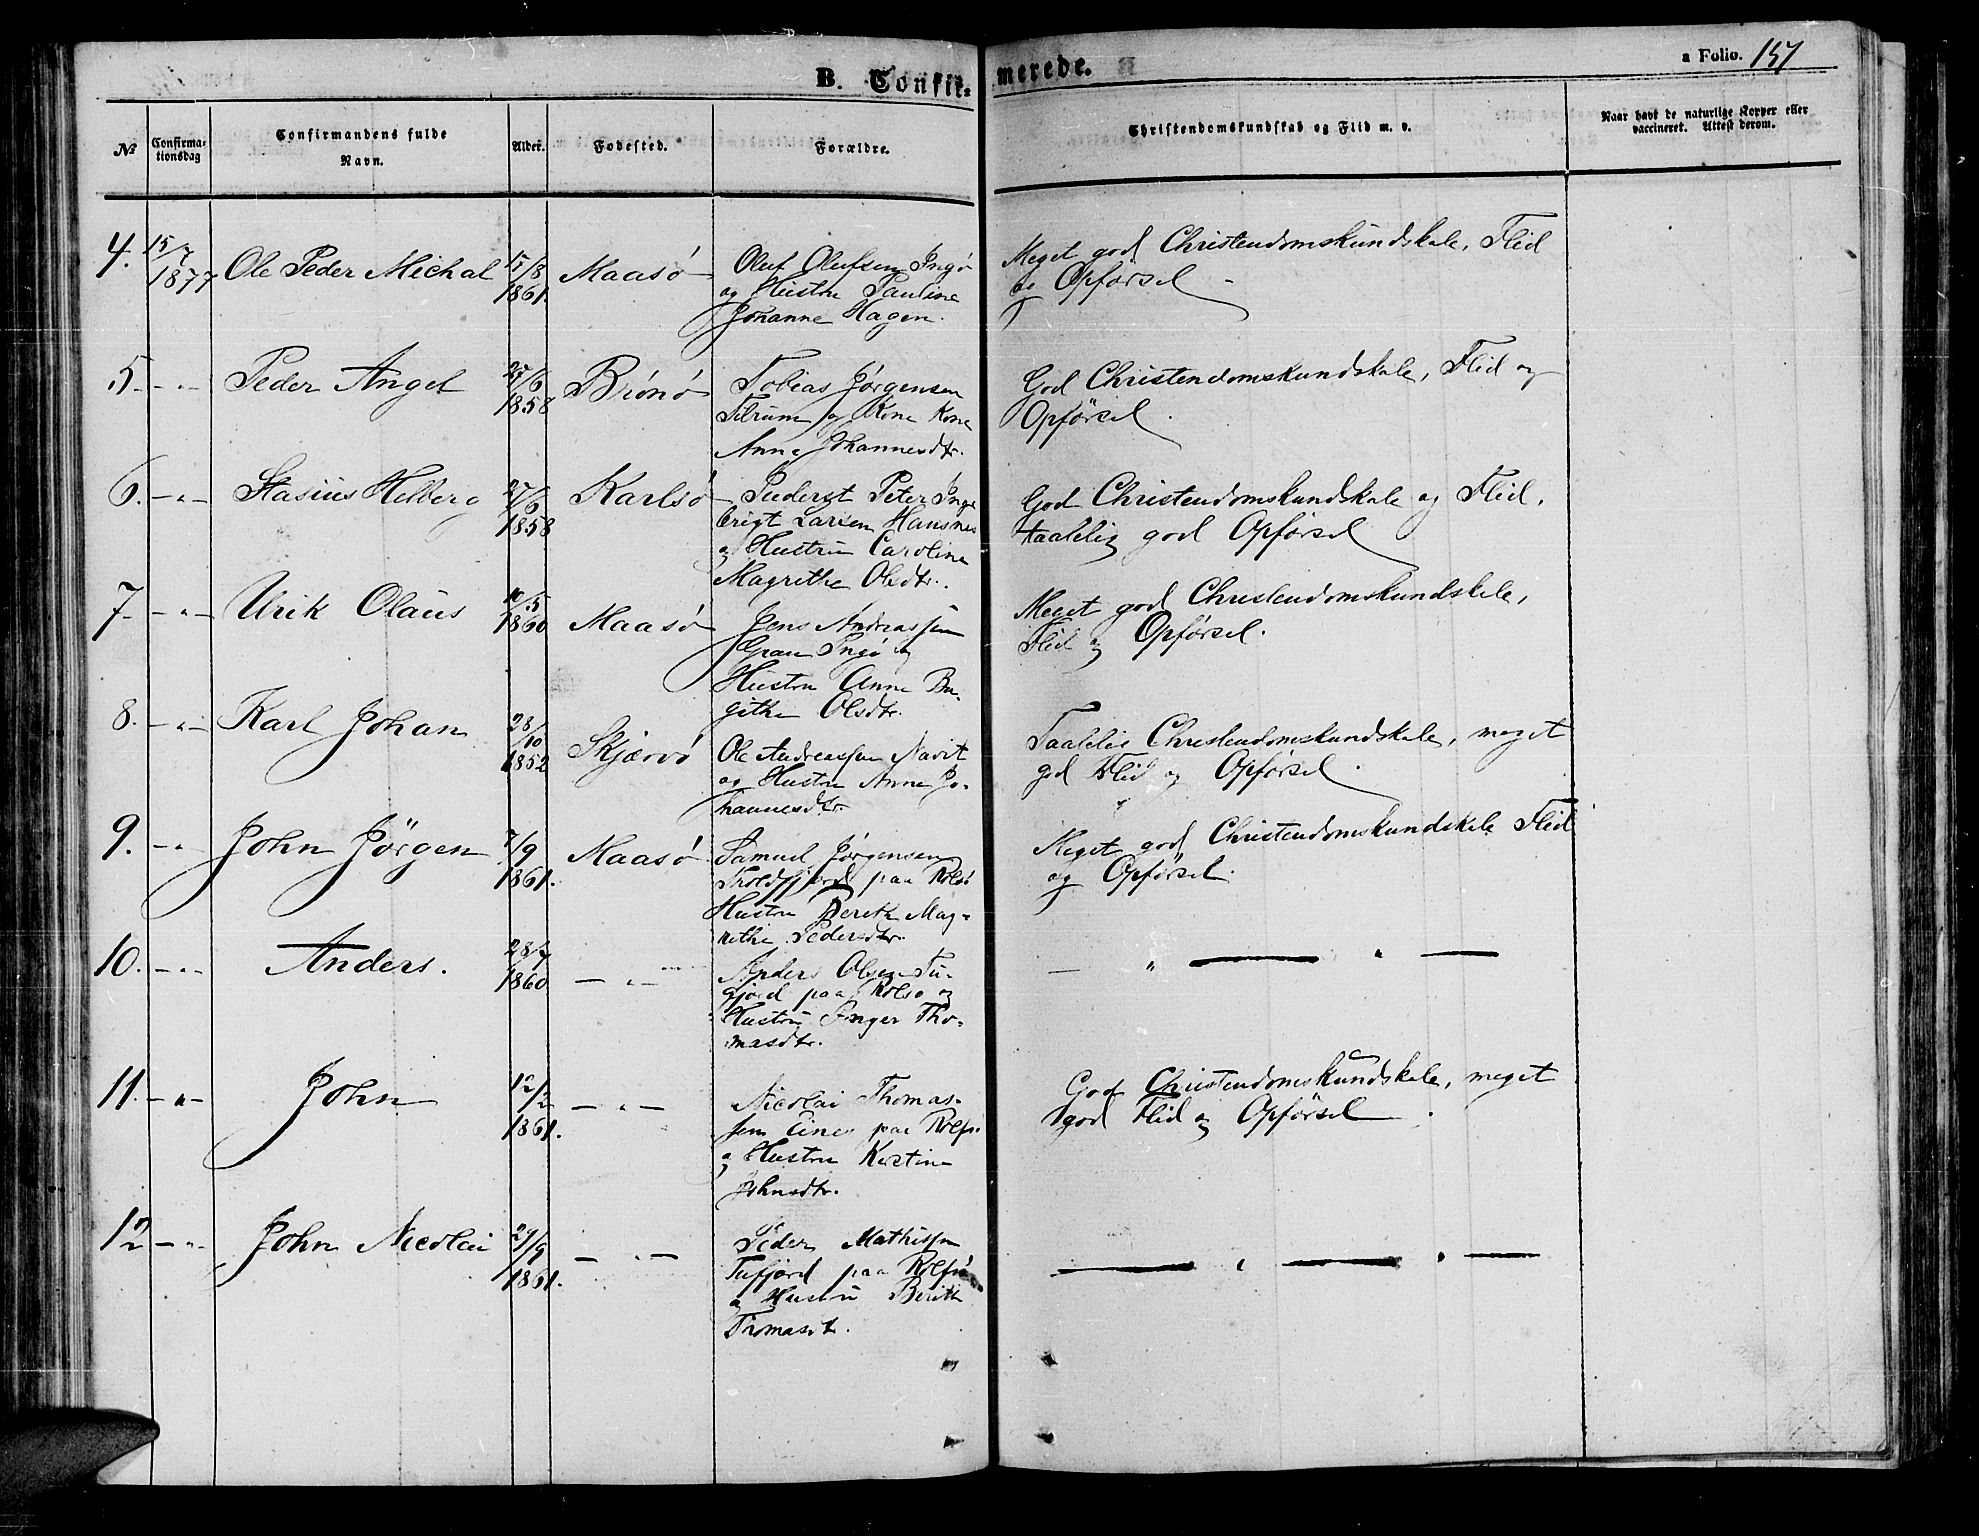 B. Confir-
merede.
a Folio. 157
№
Confirma-
tionsdag
Confirmandens fulde
Navn.
Alder.
Fodested.
Forældre.
Christendomskundskab og Flid m. v.
Naar havt de naturlige Kopper eller
vaccineret. Attest derom.
4. 15/7 1877 Ole Peder Michal 17/8 1861. Maasø
Oluf Olufsen Ingø
og Hustru Pauline
Johanne Hagen.
Meget god Christendomskundskab, Flid
og Opførsel
5 - " - Peder Angel 25/6 1858 Brønø
Tobias Jørgensen
og Kone Kone
Anne Johannesdtr.
God Christendomskundskab, Flid og
Opførsel.
6. - " - Stasius Helberg 27/6 1858 Karlsø
Peter Inge
brigt Larsen Hansnes
og Hustru Caroline
Magrethe Olsdtr.
God Christendomskundskab og Flid,
taalelig god Opførsel
7 - " - Urik Olaus 10/5 1860 Maasø
Jens Andreassen
Ingø og
Hustru Anne Be-
githe Olsdtr.
Meget god Christendomskundskab,
Flid og Opførsel.
8. - " - Karl Johan 28/10 1852 Skjærvø
Ole Andreassen
og Hustru Anne Jo-
hannesdtr.
Taalelig Christendomskundskab, meget
god Flid og Opførsel.
9. - " - John Jørgen 7/9 1861. Maasø
Samuel Jørgensen
paa Rolfsø
Hustru Bereth Mag-
rethe Pedersdtr.
Meget god Christendomskundskab Flid
og Opførsel.
10. - " - Anders. 28/7 1860 - " -
Anders Olsen Tu-
fjord paa Rolfsø og
Hustru Inger Tho-
masdtr.
- " - " -
11. - " - John 12/2 1861. - " -
Nicolai Thomas-
sen paa Rolfsø
og Hustru Kirstine
Johnsdtr.
God Christendomskundskab, meget
god Flid og Opførsel.
12 - " - John Nicolai 29/9 1861. - " -
Peder Mathissen
Tufjord paa Rolfsø
og Hustru Berith
Thomasdt.
- " - " -